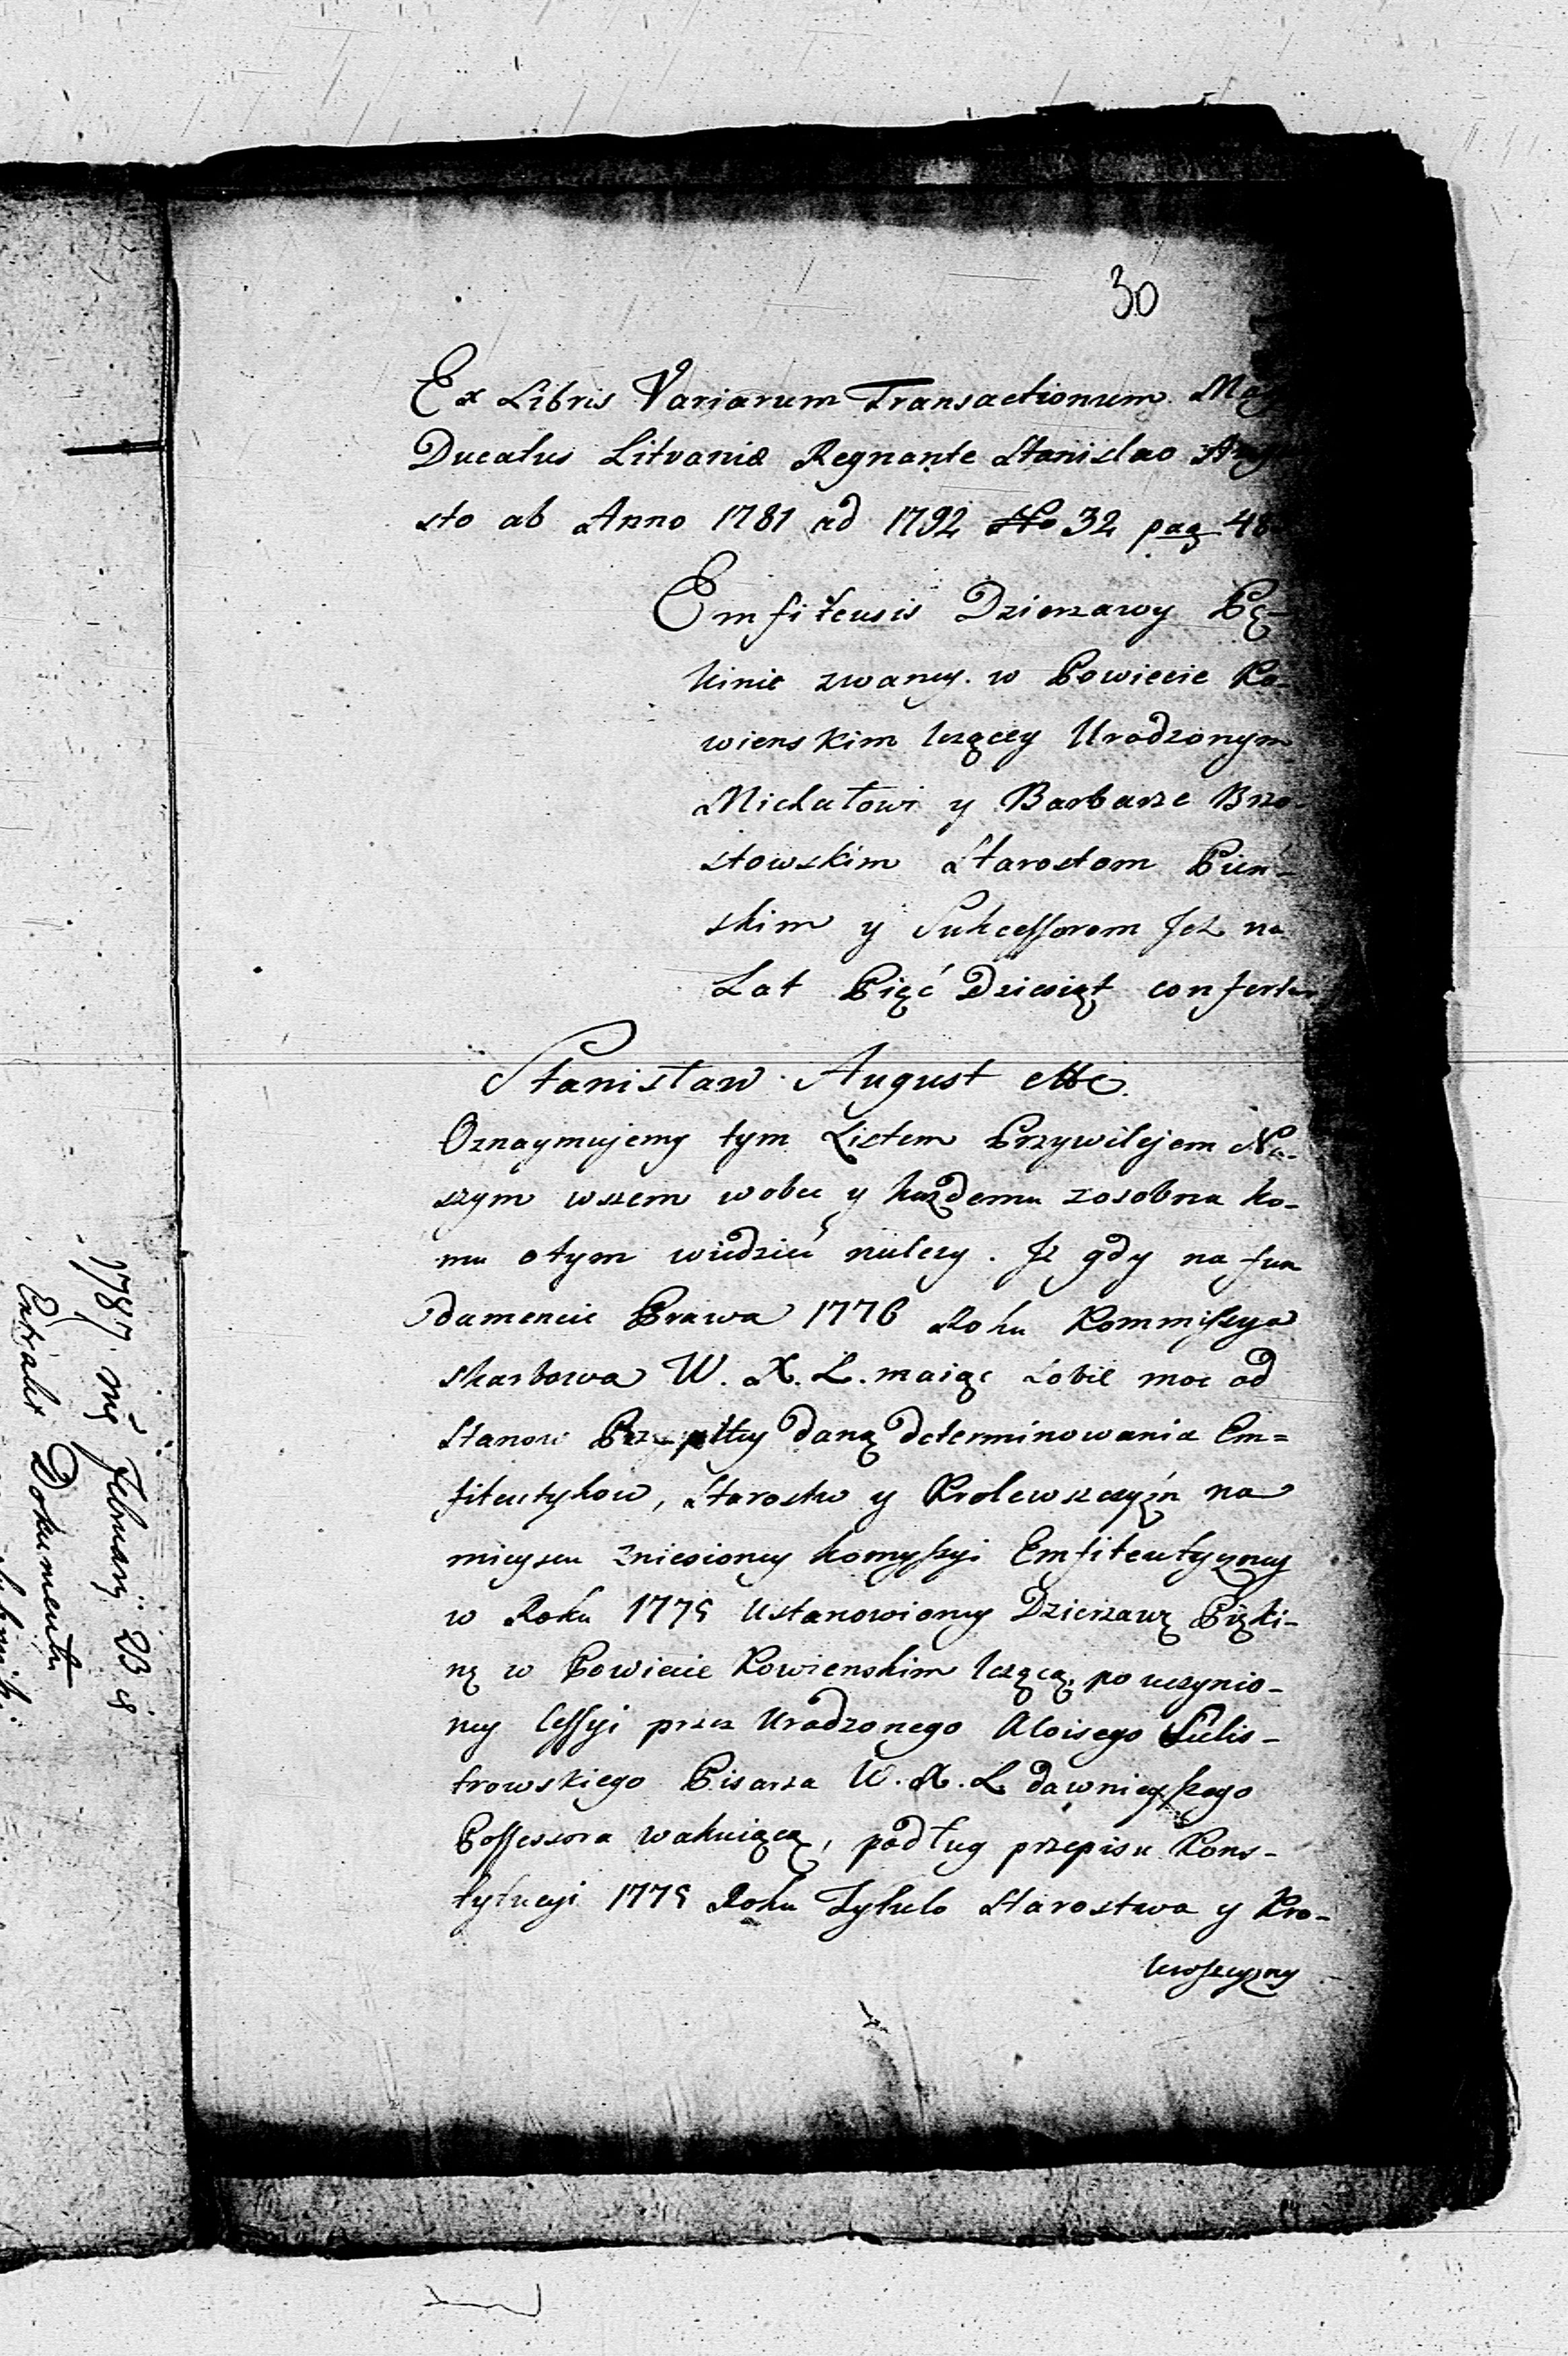 30
Ex Libris Variarum Transactionum Mag
Ducatus Litvaniæ Regnante Stanislao Augu
sto ab Anno 1781 ad 1792 No 32 pag 48
Emfiteusis Dzierzawy Pę-
kinie zwaney. w Powiecie Ko-
wienskim lezącey Urodzonym
Michałowi y Barbarze Brzo-
stowskim Starostom Pień-
skim y Sukcessorom Ich na
Lat Pięć Dziesiąt confertur
Stanisław August etc.
Oznaymujemy tym Listem Przywilejem Na-
szym wszem wobec y każdemu zosobna ko-
mu otym wiedzieć nalezy. Iz gdy na fun
damencie Prawa 1776 Roku Kommissya
skarbowa W. X. L. maiąc sobie moc od
Stanow daną determinowania Em=
fiteutykow, Starostw y Krolewszczyźn na
mieyscu zniesioney komyssyi Emfiteutyczney
w Roku 1775 Ustanowioney Dzierzawę Pięki-
nę w Powiecie Kowienskim lezącą, po uczynio-
ney Cessyi przez Urodzonego Aloisego Sulis-
trowskiego Pisarza W. X. L dawnieyszego
Possessora wakuiącą, podług przepisu Kons-
tytucyi 1775 Roku Tytulo Starostwa y Kro-
lewszczyzny
1787 mś Februarij 23 
Extrakt Dokumentu